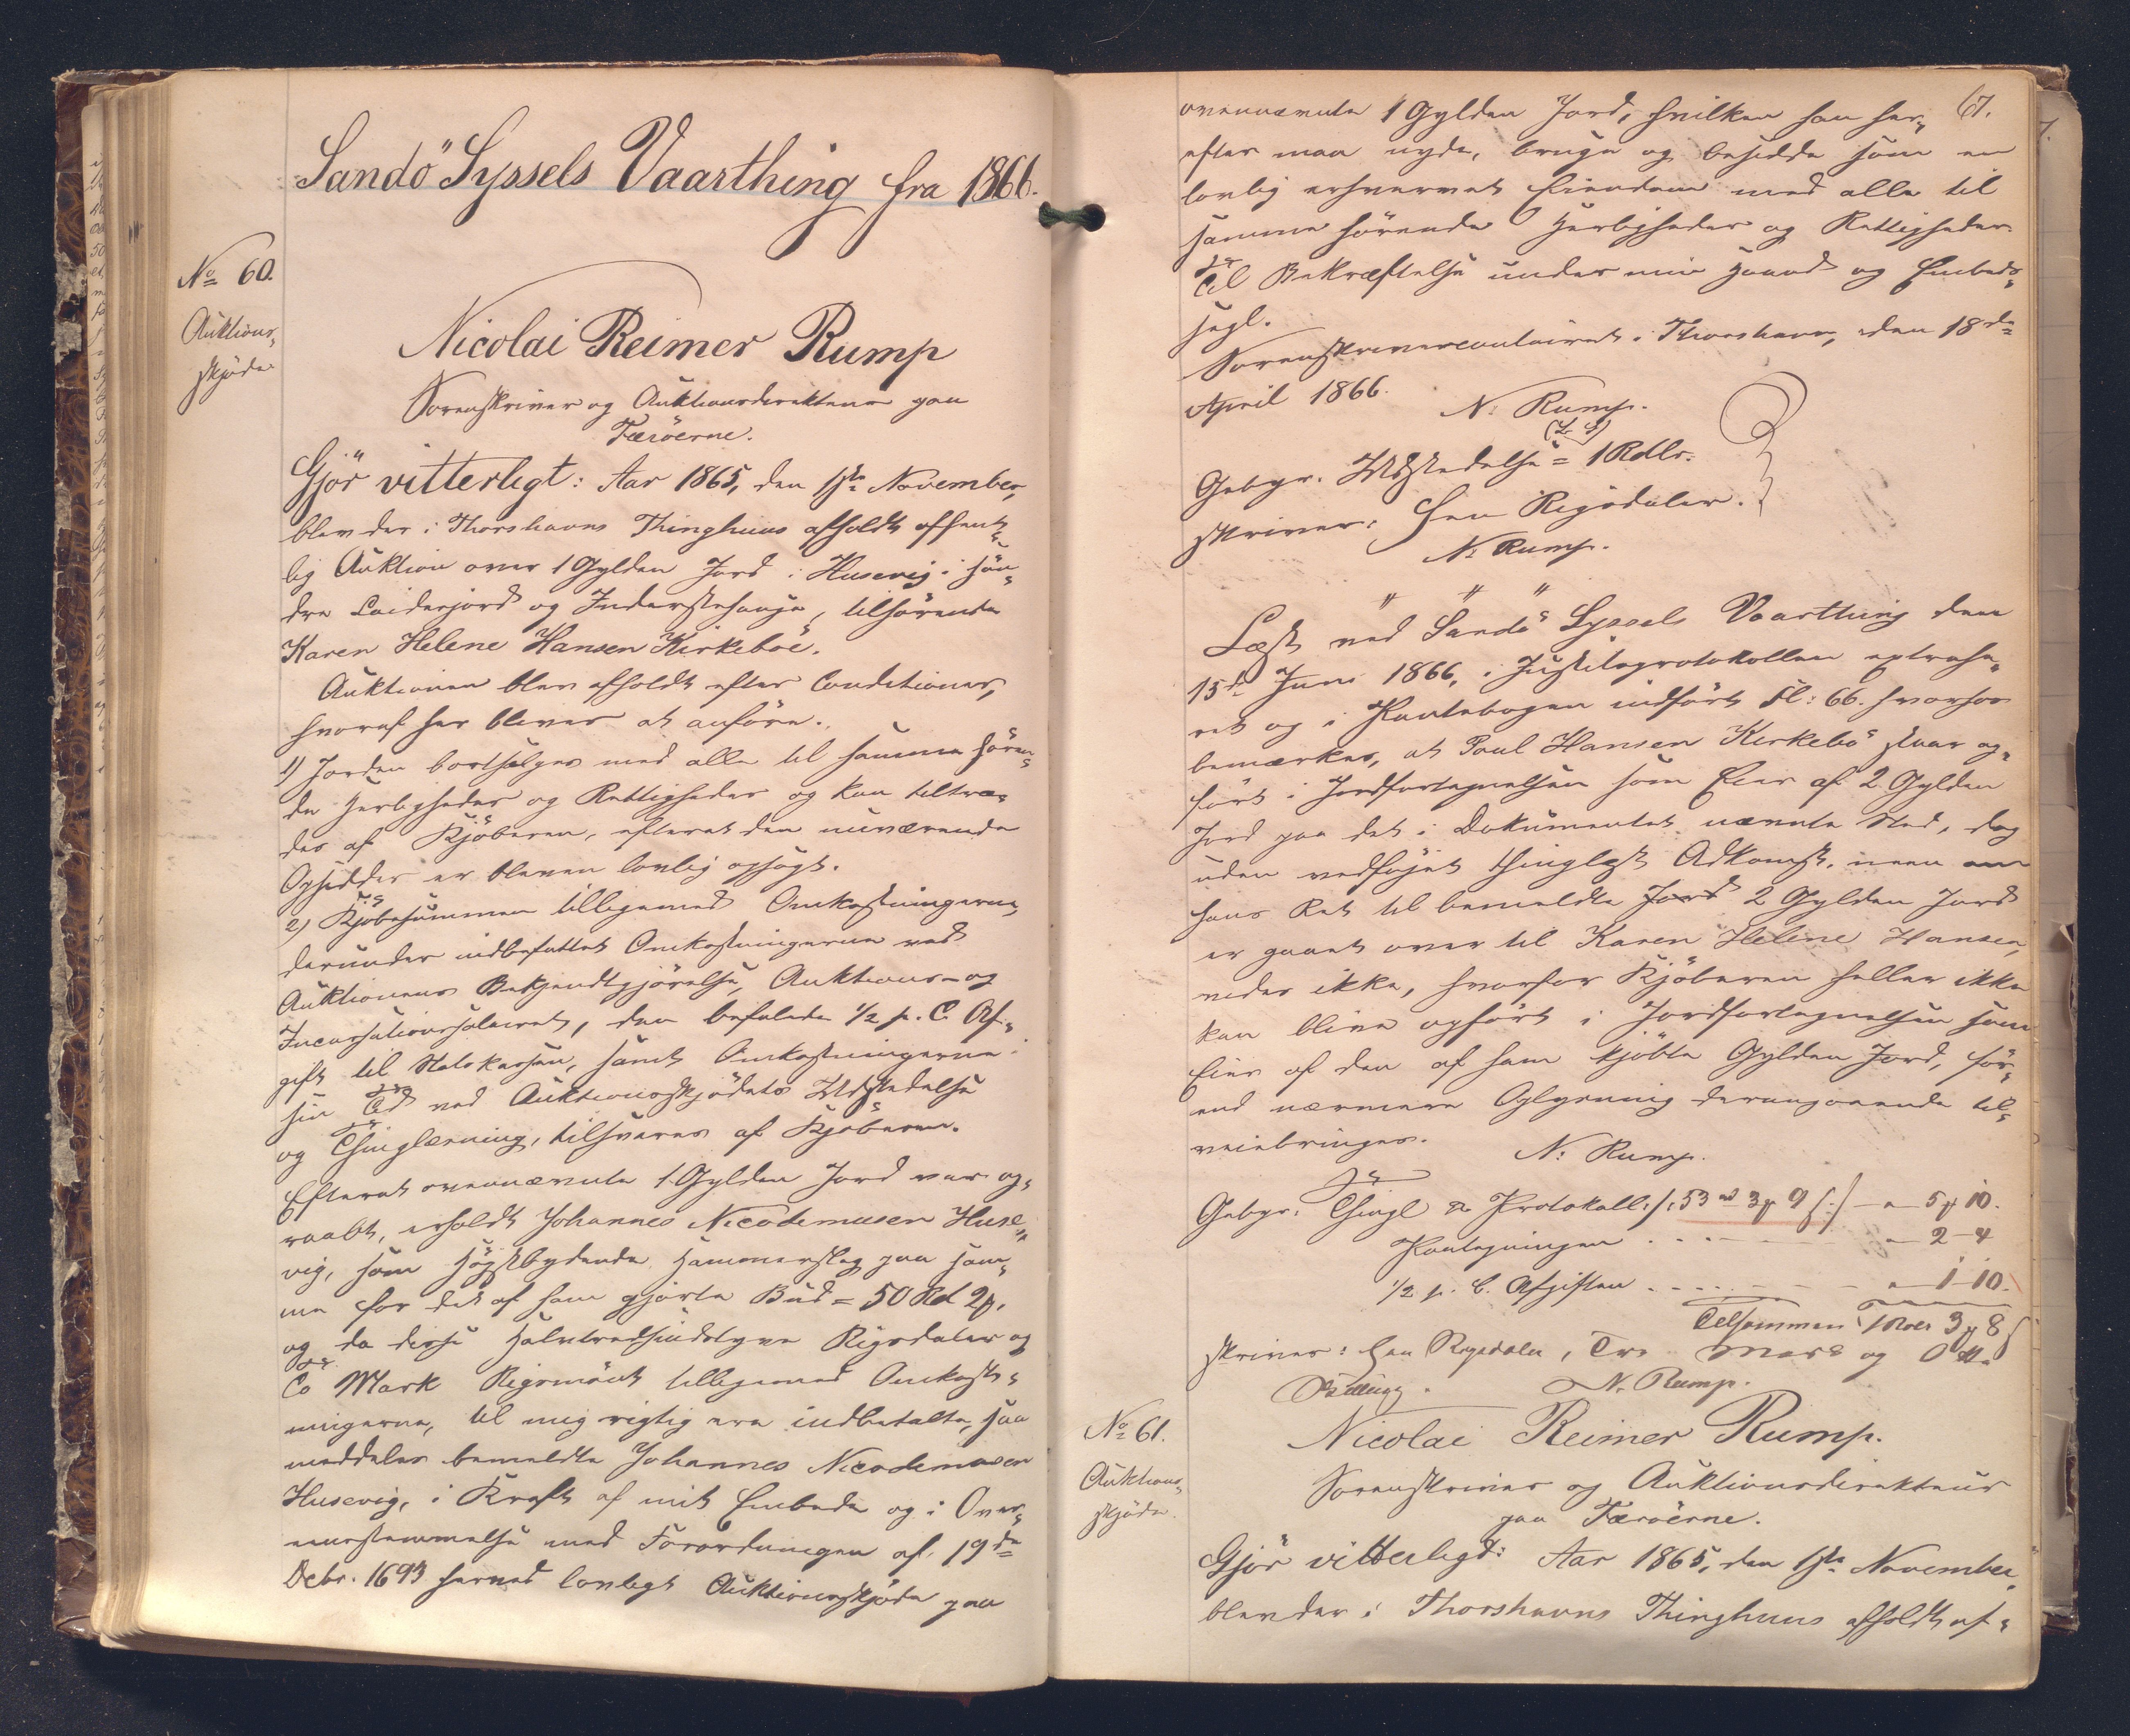 Sandö Syssels Vaarthing fra 1866.
No 60.
Auktions-
skjøde
Nicolai Reimer Rump
Sorenskriver og Auktionsdirekteur paa
Færöerne.
Gjör vitterligt: Aar 1865, den 1ste November,
blev der i Thorshavns Thinghuus afholdt offent-
lig Auktion over 1 Gylden Jord i Husevig i søn-
dre Leidesjord og Inderstehauge, tilhørende
Karen Helene Hansen Kirkeböe.
Auktionen blev afholdt efter Conditioner,
hvoraf her bliver at anføre.
1) Jorden bortsælges med alle til samme høren-
de Herligheder og Rettigheder og kan tiltræ-
des af Kjøberen, efterat den nuværende
Opsidder er bleven lovlig opsagt.
2) Kjøbesummen tilligemed Omkostningerne,
derunder indbefattet Omkostningerne ved
Auktionens Bekjendtgjørelse, Auktions- og
Incassationssalairet, den befalede 1/2 p. C. Af-
gift til Statskassen, samt Omkostningerne i
sin Tid ved Auktionsskjødets Udstedelse
og Thinglæsning, tilsvares af Kjøberen.
Efterat ovennævnte 1 Gylden Jord var op-
raabt, erholdt Johannes Nicodemusen Huse-
vig, som højstbydende Hammerslag paa sam-
me for det af ham gjorte Bud = 50 Rd 2 ₰,
og da disse Halvtredsindstyve Rigsdaler og
To Mark Rigsmønt tilligemed Omkost-
ningerne, til mig rigtig ere indbetalte, saa
meddeles bemeldte Johannes Nicodemusen
Husevig, i Kraft af mit Embede og i Over-
eensstemmelse med Forordningen af 19de
Debr. 1693 herved lovligt Auktionsskjøde paa
67.
ovennævnte 1 Gylden Jord, hvilken han her-
efter maa nyde, bruge og besidde som en
lovlig erhvervet Eiendom med alle til
samme hørende Herligheder og Rettigheder.
Til Bekræftelse under min Haand og Embeds-
segl.
Sorenskrivercontoiret i Thorshavn, den 18de
April 1866.
N. Rump.
(L. S)
Gebyr. Udstedelse = 1 Rdlr.
skriver: Een Rigsdaler.
N. Rump.
Læst ved Sandö Syssels Vaarthing den
15de Juni 1866, i Justitsprotokollen extrahe-
ret og i Pantebogen indført Fl: 66. hvorhos
bemærkes, at Poul Hansen Kirkebö staar op-
ført i Jordfortegnelsen som Eier af 2 Gylden
Jord paa det i Dokumentet nævnte Sted, dog
uden vedføjet thinglæst Adkomst. men om
hans Ret til bemeldte Jord 2 Gylden Jord
er gaaet over til Karen Helene Hansen,
vides ikke, hvorfor Kjøberen heller ikke
kan blive opført i Jordfortegnelsen som
Eier af den af ham kjøbte Gylden Jord, før-
end nærmere Oplysning derangaaende til-
veiebringes.
N. Rump.
Gebyr: Thingl & Protokoll. /: 53 rd 3 ₰ 9 ſ :/ - " 5 ₰ 10.
Pantegningen . . . - " 2 - 4
1/2 p. C. Afgiften . . . . " 1 - 10.
Tilsammen 1 Rdlr 3 ₰ 8 ſ
skriver: Een Rigsdaler, Tre Mark og Otte
Skilling. N. Rump.
No 61.
Auktions-
skjøde.
Nicolai Reimer Rump.
Sorenskriver og Auktionsdirekteur
paa Færöerne.
Gjör vitterligt: Aar 1865, den 1ste November,
blev der i Thorshavns Thinghuus afholdt of-